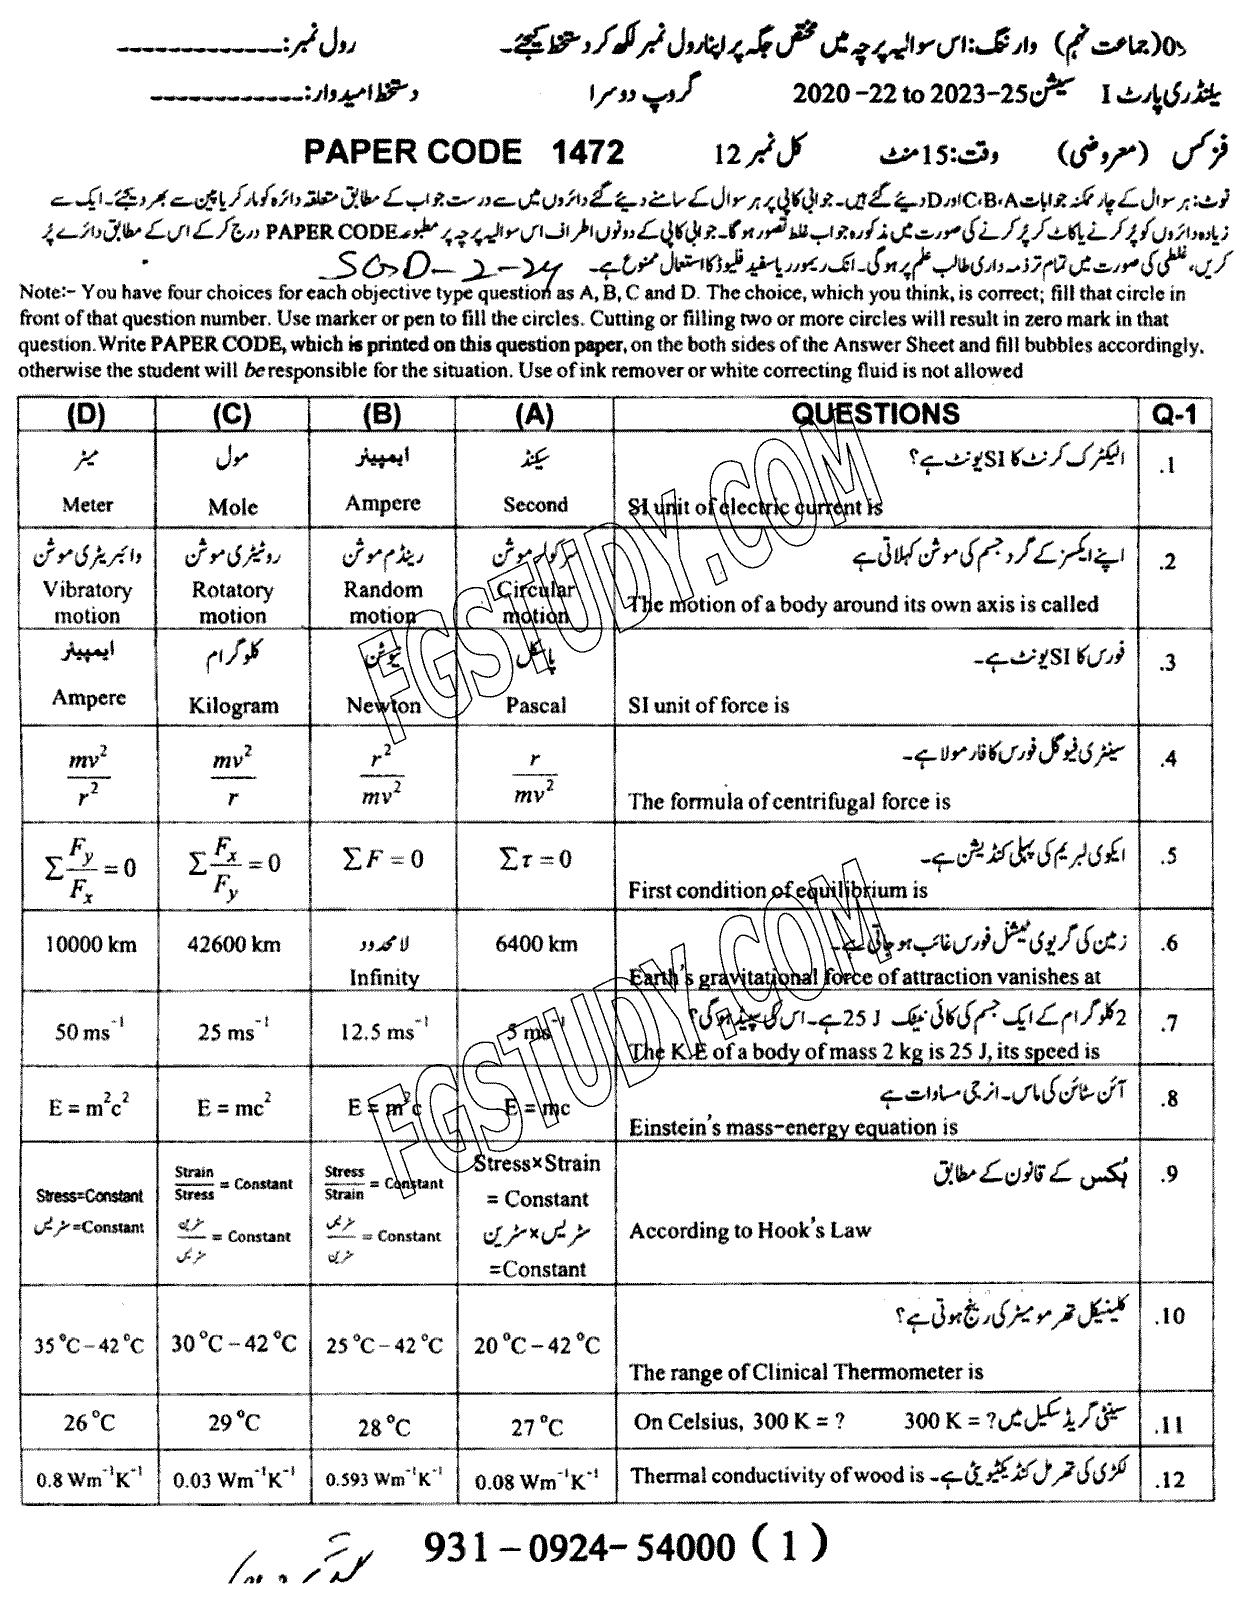 0s(جماعت نہم) وارننگ: اس سوالیہ پرچہ میں مختص جگہ پر اپنا رول نمبر لکھ کر دستخط کیجئے۔ رول نمبر:-------------
پارٹ I سیشن 2020 -22 to 2023-25 گروپ دوسرا دستخط امیدوار:------------
فزکس (معروضی) وقت: 15 منٹ کل نمبر 12 PAPER CODE 1472
نوٹ: ہر سوال کے چار ممکنہ جوابات C،B،A اور D دیئے گئے ہیں۔ جوابی کاپی پر ہر سوال کے سامنے دیئے گئے دائروں میں سے درست جواب کے مطابق متعلقہ دائرہ کو مارکر یا پین سے بھر دیجئے۔ ایک سے
زیادہ دائروں کو پُر کرنے یا کاٹ کر پُر کرنے کی صورت میں مذکورہ جواب غلط تصور ہوگا۔ جوابی کاپی کے دونوں اطراف اس سوالیہ پرچہ پر مطبوعہ PAPER CODE درج کر کے اس کے مطابق دائرے پُر
کریں، غلطی کی صورت میں تمام تر ذمہ داری طالب علم پر ہوگی۔ انک ریموور یا سفید فلیوڈ کا استعمال ممنوع ہے۔ SGD-2-24
Note:- You have four choices for each objective type question as A, B, C and D. The choice, which you think, is correct; fill that circle in
front of that question number. Use marker or pen to fill the circles. Cutting or filling two or more circles will result in zero mark in that
question. Write PAPER CODE, which is printed on this question paper, on the both sides of the Answer Sheet and fill bubbles accordingly,
otherwise the student will be responsible for the situation. Use of ink remover or white correcting fluid is not allowed
(D) (C) (B) (A) QUESTIONS Q-1
میٹر مول ایمپیئر سیکنڈ الیکٹرک کرنٹ کا SI یونٹ ہے؟ .1
Meter Mole Ampere Second SI unit of electric current is
وائبریٹری موشن روٹیٹری موشن رینڈم موشن سرکولر موشن اپنے ایکسز کے گرد جسم کی موشن کہلاتی ہے .2
Vibratory motion Rotatory motion Random motion Circular motion The motion of a body around its own axis is called
ایمپیئر کلوگرام نیوٹن پاسکل فورس کا SI یونٹ ہے۔ .3
Ampere Kilogram Newton Pascal SI unit of force is
سینٹری فیوگل فورس کا فارمولا ہے۔ .4
mv²/r² mv²/r r²/mv² r/mv² The formula of centrifugal force is
ایکوی لبریم کی پہلی کنڈیشن ہے۔ .5
∑Fy/Fx=0 ∑Fx/Fy=0 ∑F=0 ∑τ=0 First condition of equilibrium is
10000 km 42600 km لامحدود 6400 km زمین کی گریوی ٹیشنل فورس غائب ہو جاتی ہے۔ .6
Infinity Earth's gravitational force of attraction vanishes at
2 کلوگرام کے ایک جسم کی کائی نیٹک 25 J ہے۔ اس کی سپیڈ ہوگی؟ .7
50 ms⁻¹ 25 ms⁻¹ 12.5 ms⁻¹ 5 ms⁻¹ The K.E of a body of mass 2 kg is 25 J, its speed is
آئن سٹائن کی ماس۔ انرجی مساوات ہے .8
E = m²c² E = mc² E = m²c E = mc Einstein's mass-energy equation is
ہُکس کے قانون کے مطابق .9
Stress=Constant Strain/Stress = Constant Stress/Strain = Constant Stress×Strain = Constant According to Hook's Law
سٹریس=Constant سٹرین/سٹریس = Constant سٹریس/سٹرین = Constant سٹریس×سٹرین =Constant
کلینیکل تھرمومیٹر کی رینج ہوتی ہے؟ .10
35 °C – 42 °C 30 °C – 42 °C 25 °C – 42 °C 20 °C – 42 °C The range of Clinical Thermometer is
26 °C 29 °C 28 °C 27 °C On Celsius, 300 K = ? سینٹی گریڈ سکیل میں 300 K = ? .11
0.8 Wm⁻¹K⁻¹ 0.03 Wm⁻¹K⁻¹ 0.593 Wm⁻¹K⁻¹ 0.08 Wm⁻¹K⁻¹ Thermal conductivity of wood is لکڑی کی تھرمل کنڈیکٹیویٹی ہے۔ .12
931 – 0924 – 54000 ( 1 )
FGSTUDY.COM
FGSTUDY.COM